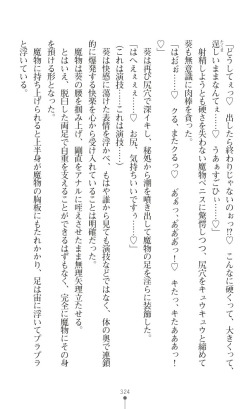 「どうしてぇっ♡　出したら終わりじゃないのぉっ!?♡　こんなに硬くって、大きくって、
逞しいままなんてぇ……♡　うあぁすごひぃ……♡」
　射精しようとも硬さを失わない魔物ペニスに驚愕しつつ、尻穴をキュウキュウと締めて
葵も無意識に肉棒を貪った。
「はぉぉ……♡　クる、またクるっ♡　あぁっ、あああっ！　キたっ、キたあああっ！
♡」
　葵は再び尻穴で深イキし、秘処から潮を噴き出して魔物の足を淫らに装飾した。
「はへぇぇぇ……♡　お尻、気持ちいいですぅ……♡」
（これは演技……これは演技……）
　葵は快感に染まった表情を浮かべ、もはや誰から見ても演技などではなく、体の奥で連鎖
的に爆発する快楽を心から受け入れていることは明確だった。
　魔物は葵の腰を掴み上げ、剛直をアナルに咥えさせたまま無理矢理立たせる。
　とはいえ、脱臼した両足で自重を支えることができるはずもなく、完全に魔物にその身
を預ける形となる。
　魔物に持ち上げられると上半身が魔物の胸板にもたれかかり、足は宙に浮いてプラプラ
と浮いている。
324